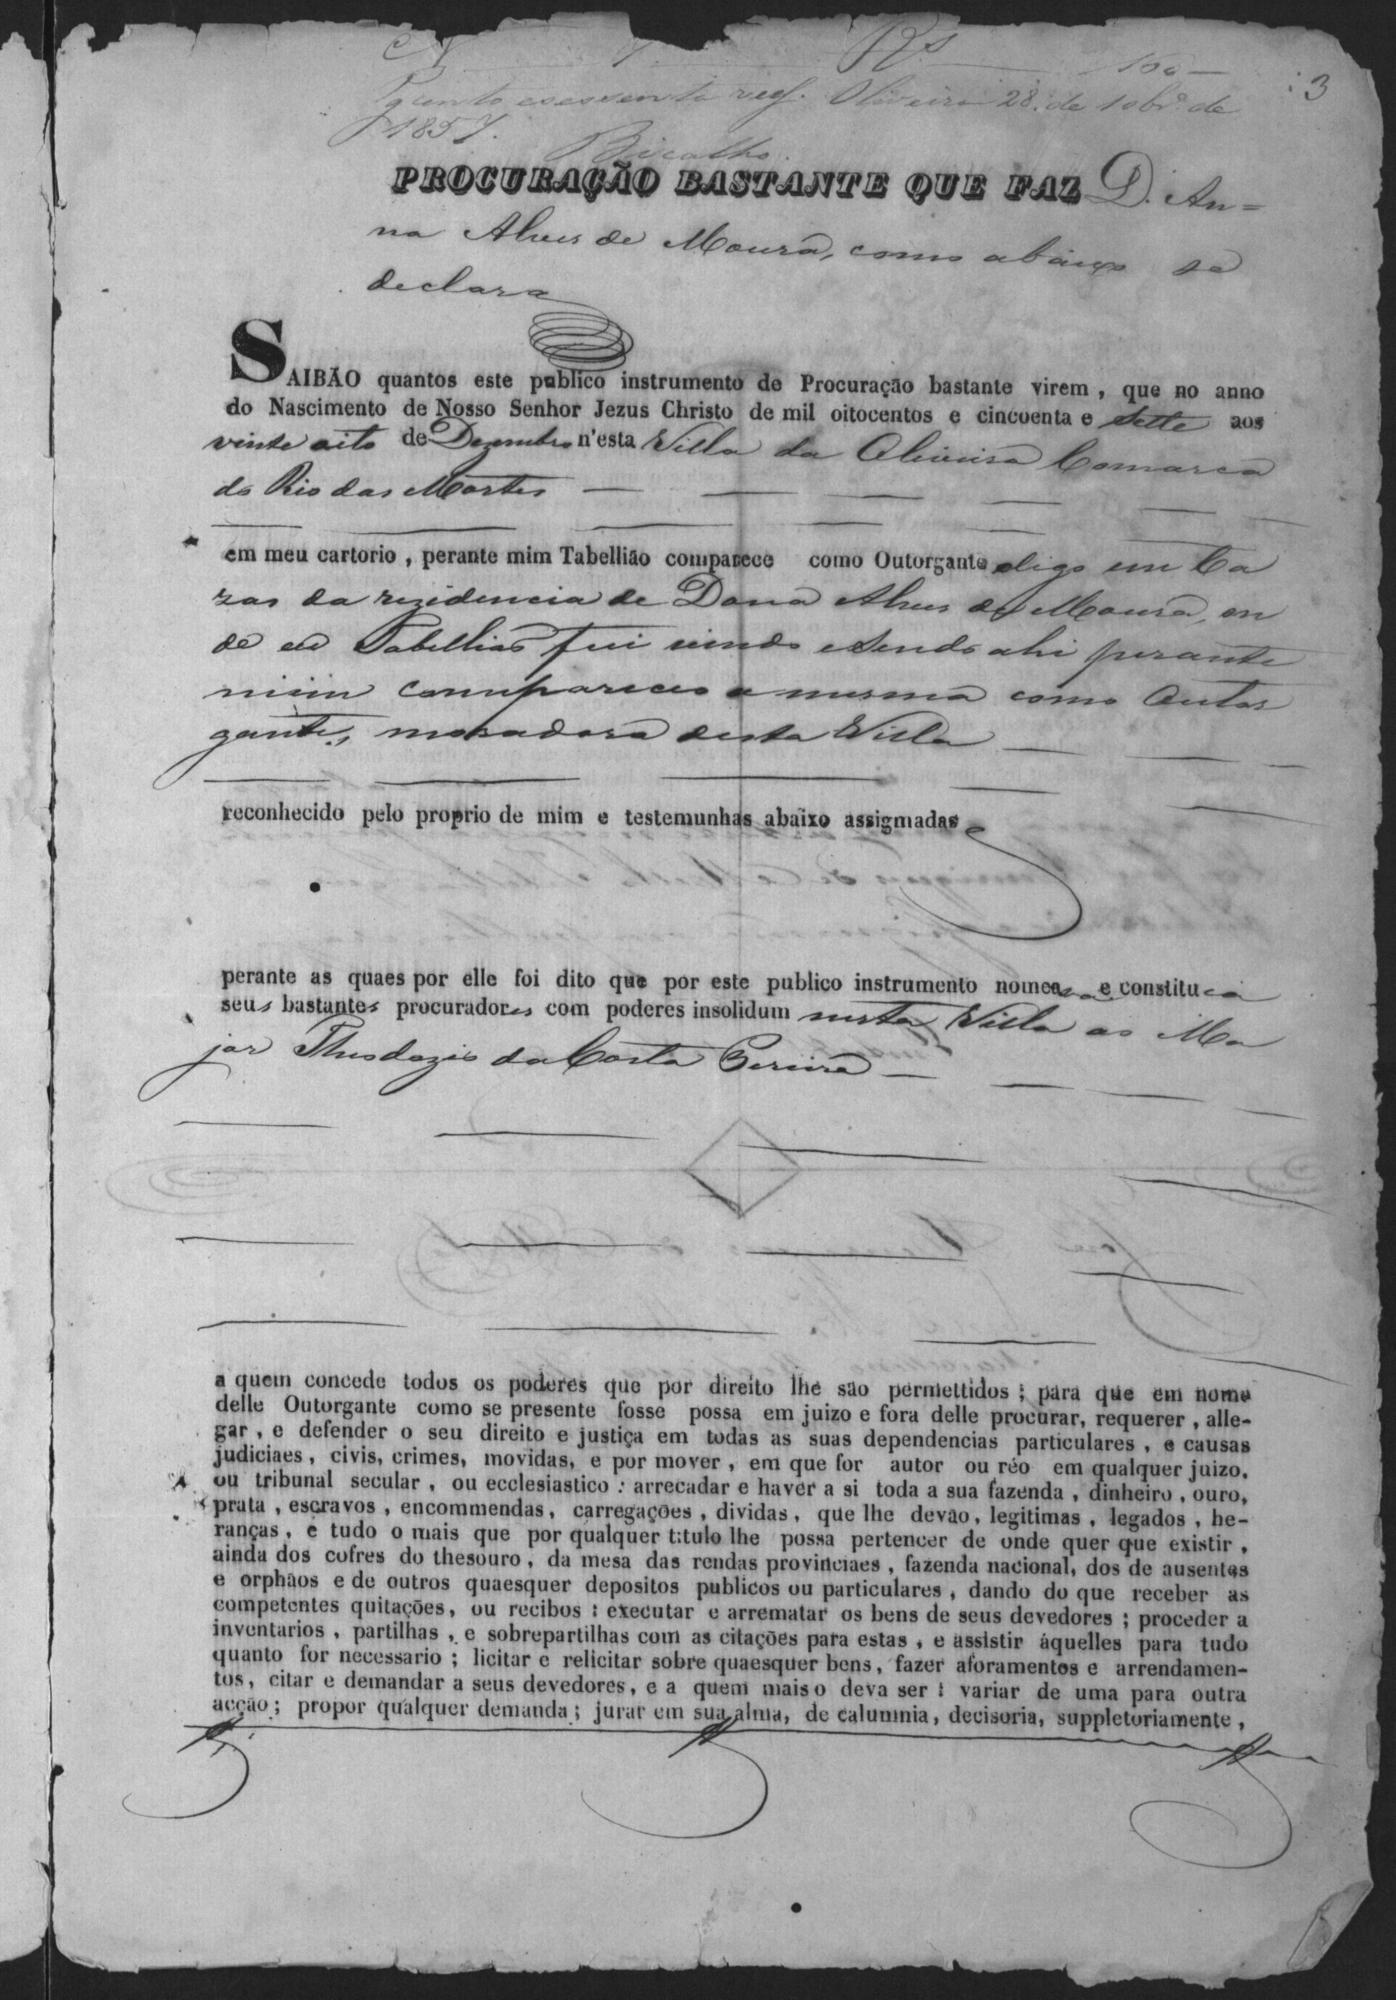 N 1 Rs 160
3
Pg cento e sessenta reis. Oliveira 28 de 10br.o de
1857.
Bicalho
PROCURAÇÃO BASTANTE QUE FAZ D. An=
na Alves de Moura, como abaixo se
declara
SAIBÃO quantos este publico instrumento de Procuração bastante virem, que no anno
do Nascimento de Nosso Senhor Jezus Christo de mil oitocentos e cincoenta e Sette aos
vinte oito de Dezembro n'esta Villa da Oliveira Comarca
do Rio das Mortes
em meu cartorio, perante mim Tabellião comparece como Outorgante digo em Ca
zas da rezidencia de Dona Alves de Moura, on
de eu Tabellião fui vindo e sendo ahi perante
mim compareceo a mesma como Outor
gante, moradora desta Villa
reconhecido pelo proprio de mim e testemunhas abaixo assignadas
perante as quaes por elle foi dito que por este publico instrumento nomea e constitue
seus bastantes procuradores com poderes insolidum nesta Villa ao Ma
jor Theodozio da Costa Pereira
a quem concede todos os poderes que por direito lhe são permettidos; para que em nome
delle Outorgante como se presente fosse possa em juizo e fora delle procurar, requerer, alle-
gar, e defender o seu direito e justiça em todas as suas dependencias particulares, e causas
judiciaes, civis, crimes, movidas, e por mover, em que for autor ou réo em qualquer juizo,
ou tribunal secular, ou ecclesiastico: arrecadar e haver a si toda a sua fazenda, dinheiro, ouro,
prata, escravos, encommendas, carregações, dividas, que lhe devão, legitimas, legados, he-
ranças, e tudo o mais que por qualquer titulo lhe possa pertencer de onde quer que existir,
ainda dos cofres do thesouro, da mesa das rendas provinciaes, fazenda nacional, dos de ausentes
e orphãos e de outros quaesquer depositos publicos ou particulares, dando do que receber as
competentes quitações, ou recibos: executar e arrematar os bens de seus devedores; proceder a
inventarios, partilhas, e sobrepartilhas com as citações para estas, e assistir áquelles para tudo
quanto for necessario; licitar e relicitar sobre quaesquer bens, fazer aforamentos e arrendamen-
tos, citar e demandar a seus devedores, e a quem mais o deva ser: variar de uma para outra
acção; propor qualquer demanda; jurar em sua alma, de calumnia, decisoria, suppletoriamente,